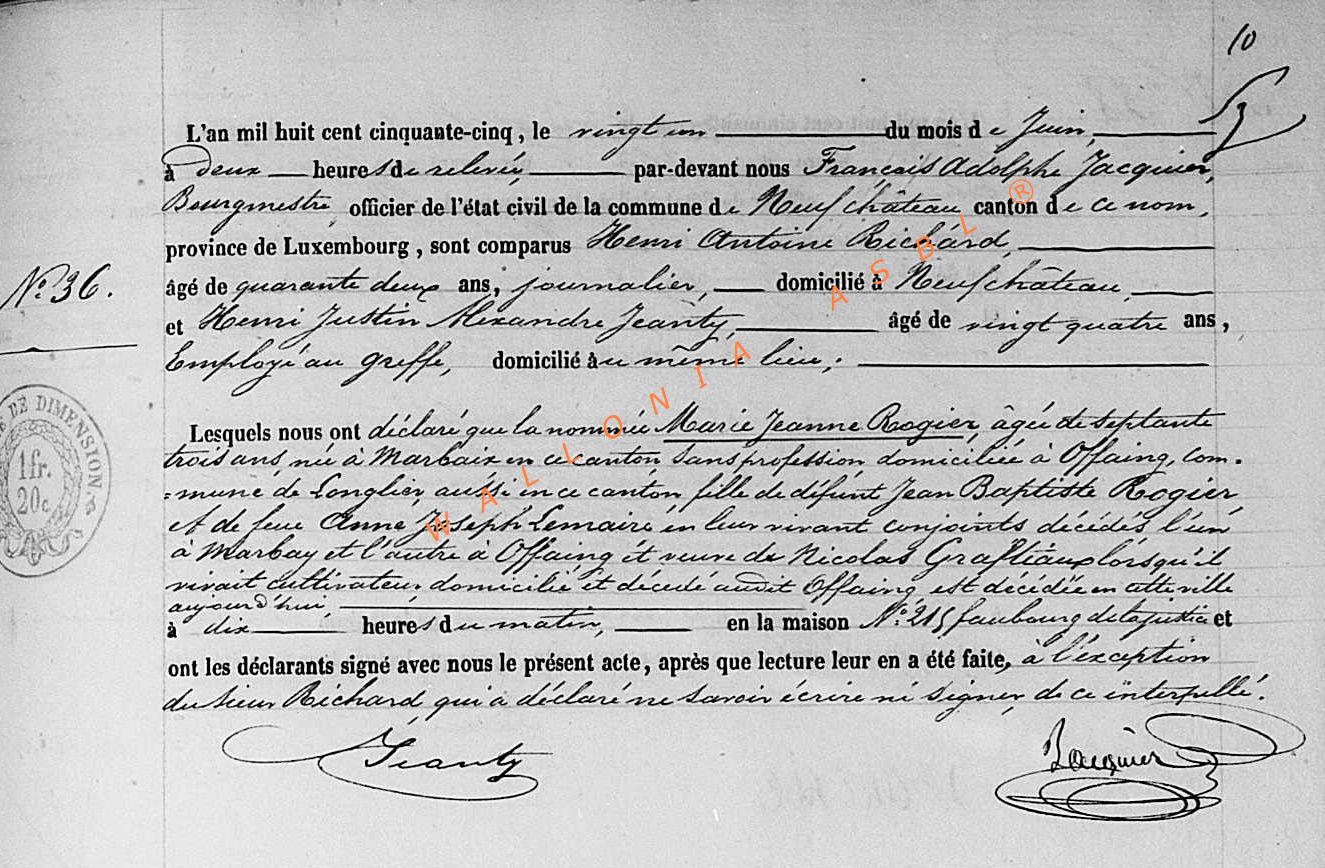 10
L'an mil huit cent cinquante-cinq, le vingt un du mois de Juin,
à deux heures de relevée, par-devant nous François Adolphe Jacquier,
Bourgmestre, officier de l'état civil de la commune de Neufchâteau canton de ce nom,
province de Luxembourg, sont comparus Henri Antoine Richard,
N.º 36.
âgé de quarante deux ans, journalier, domicilié à Neufchâteau,
et Henri Justin Alexandre Jeanty, âgé de vingt quatre ans,
Employé au greffe, domicilié au même lieu;
E DE DIMENSION
1 fr.
20c
Lesquels nous ont déclaré que la nommée Marie Jeanne Rogier, âgée de septante
trois ans, née à Marbaix en ce canton sans profession domiciliée à Offaing, com-
=mune de Longlier, aussi en ce canton fille de défunt Jean Baptiste Rogier
et de feue Anne Joseph Lemaire en leur vivant conjoints décédés l'un
à Marbay et l'autre à Offaing et veuve de Nicolas Graftiaux lorsqu'il
vivait cultivateur, domicilié et décédé audit Offaing est décédée en cette ville
aujourd'hui,
à dix heures du matin, en la maison N.º 215 faubourg de la justice et
ont les déclarants signé avec nous le présent acte, après que lecture leur en a été faite, à l'exception
du sieur Richard qui a déclaré ne savoir écrire ni signer, de ce interpellé.
Jeanty Jacquier
WALLONIA ASBL ®